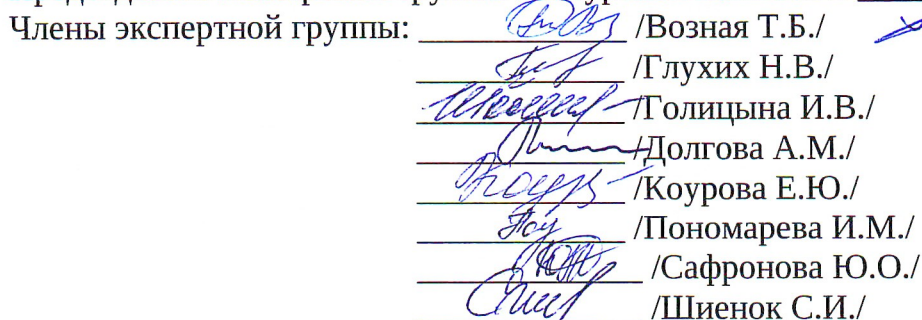 Члены экспертной группы: /Возная Т.Б./
/Глухих Н.В./
/Голицына И.В./
/Долгова А.М./
/Коурова Е.Ю./
/Пономарева И.М./
/Сафронова Ю.О./
/Шиенок С.И./